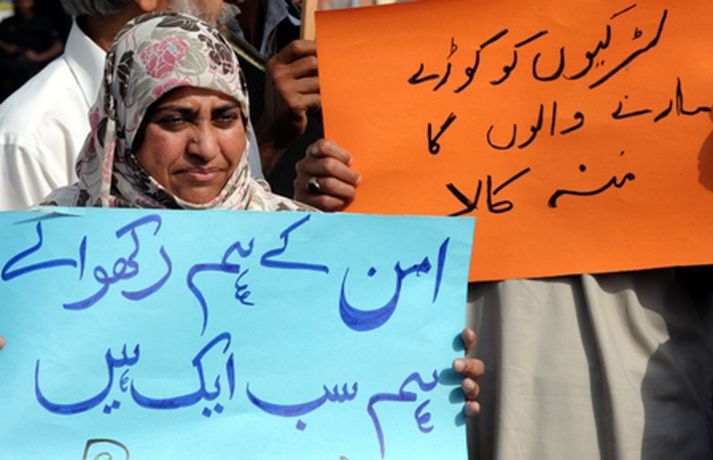 لڑکیوں کو کوڑے
مارنے والوں کا
منہ کالا
امن کے ہم رکھوالے
ہم سب ایک ہیں